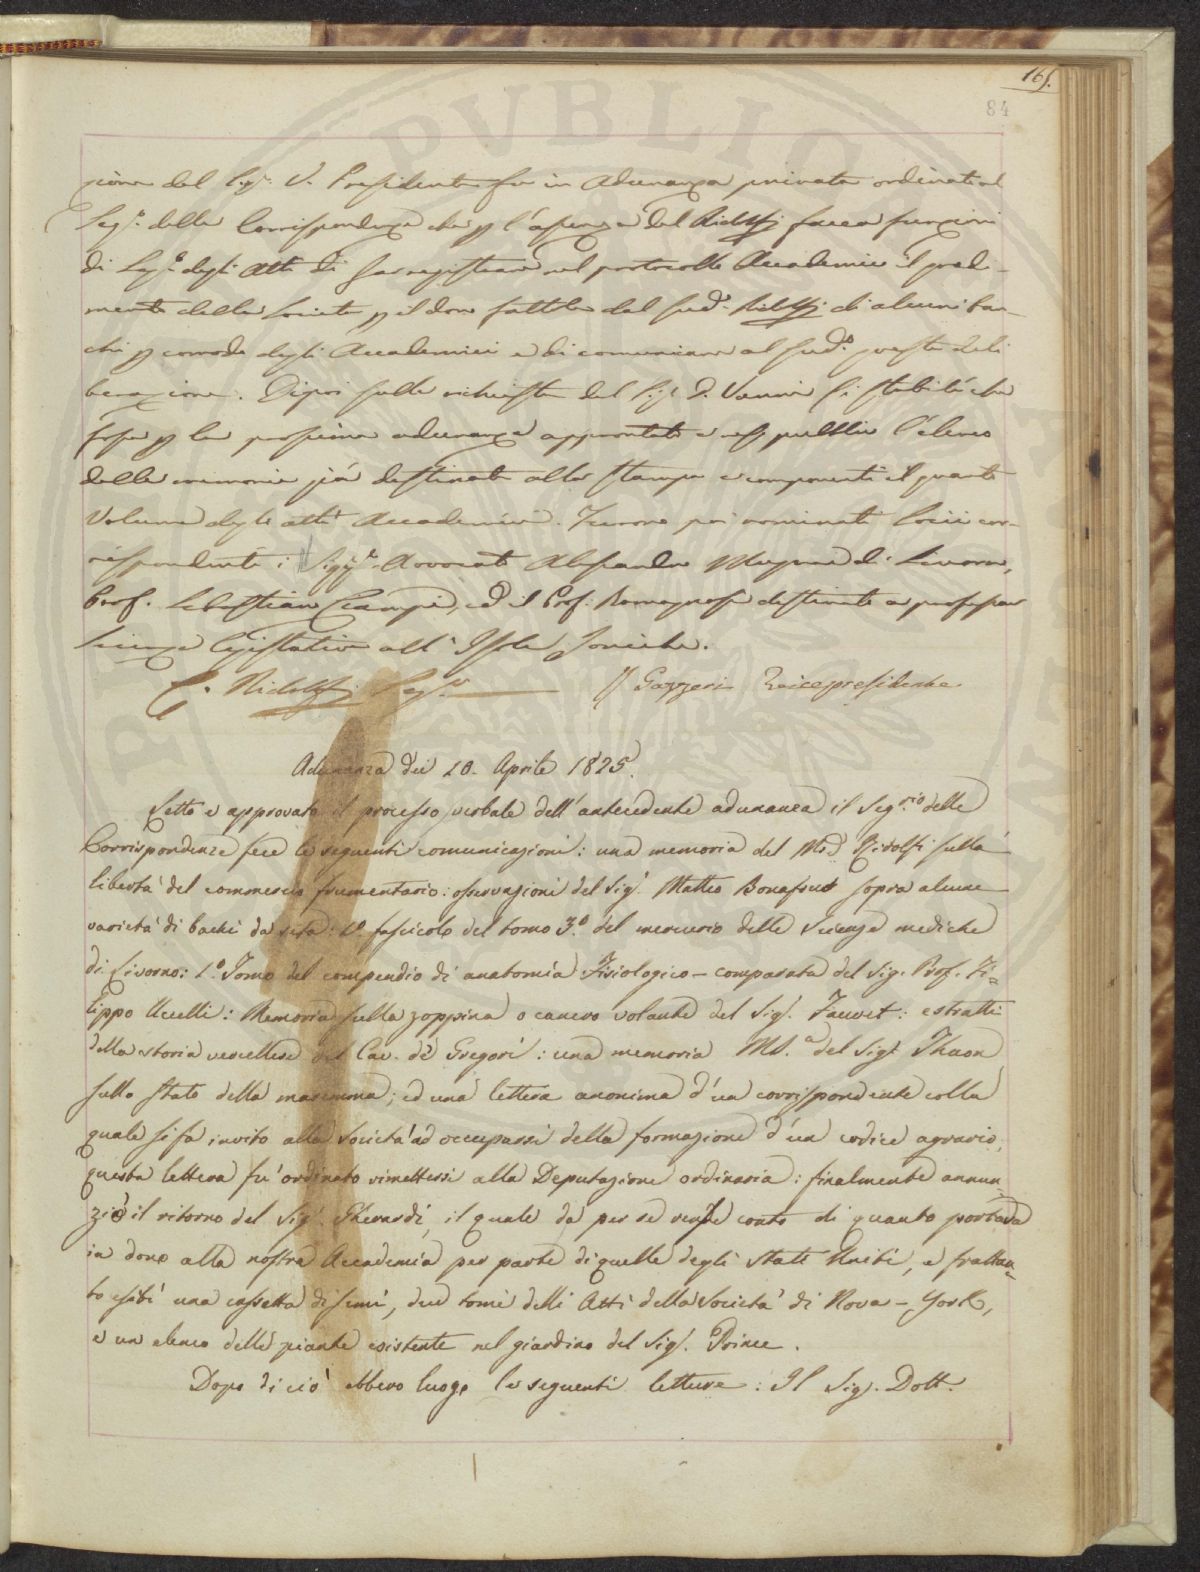 165.
84
PVBLIC
zione del Sig.r V. Presidente fu in Adunanza privata ordinato al
Seg.o delle Corrispondenze che p l'assenza del Ridolfi facea funzioni
di Seg.o degli Atti di far registrare nel protocollo Accademico il gradi-
mento della Società p il dono fattole dal sud.o Ridolfi di alcuni ban-
chi p comodo degli Accademici e di comunicare al sud.o questa deli
berazione. Dipoi sulla richiesta del Sig. D. Vannii si stabilì che
fosse p la prossima adunanza approntato e reso pubblico l'elenco
delle memorie già destinate alla stampa e componenti il quarto
Volume degli atti Accademici. Furono poi nominati Socii cor-
rispondenti i Sigg.ri Avvocato Alessandro Magnani di Livorno,
Prof. Sebastiano Ciampi, ed il Prof. Romagnosi destinato a professar
Scienza legislativa all' Isole Joniche.
C. Ridolfi Seg.o
Gazzeri Vicepresidente
Adunanza dei 10. Aprile 1825.
Letto e approvato il processo verbale dell' antecedente adunanza il Seg.rio delle
Corrispondenze fece le seguenti comunicazioni: una memoria del M.e Ridolfi sulla
libertà del commercio frumentario: osservazioni del Sig.r Matteo Bonafous sopra alcune
varietà di bachi da seta: fascicolo del tomo 3.o del mercurio delle Scienze mediche
di Livorno: 1.o Tomo del compendio di anatomia Fisiologico-comparata del Sig. Prof. Fi=
lippo Uccelli: Memoria sulla zoppina o cancro volante del Sig.r Fauvet: estratti
della storia vercellese del Cav. de Gregori: una memoria MS.a del Sig.r Thaon
sullo stato della maremma; ed una lettera anonima d'un corrispondente colla
quale si fa invito alla Società ad occuparsi della formazione d'un codice agrario,
questa lettera fu ordinato rimettersi alla Deputazione ordinaria: finalmente annun
ziò il ritorno del Sig.r Gherardi, il quale da per se rende conto di quanto portava
in dono alla nostra Accademia per parte di quelle degli Stati Uniti, e frattan=
to esibì una cassetta di semi, due tomi delli Atti della Società di Nova-York,
e un elenco delle piante esistente nel giardino del Sig.r Prince.
Dopo di ciò ebbero luogo le seguenti letture: Il Sig. Dott.